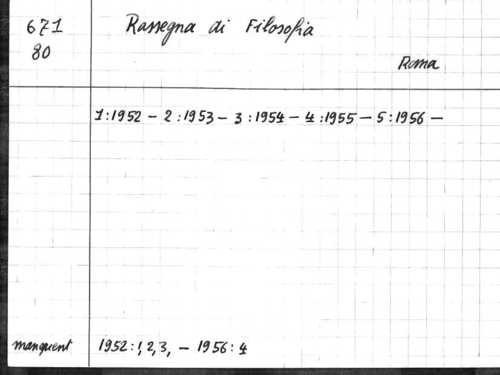 671
80
Rassegna di Filosofia
Roma
1:1952 – 2:1953 – 3:1954 – 4:1955 – 5:1956 –
manquent 1952:1,2,3, – 1956:4